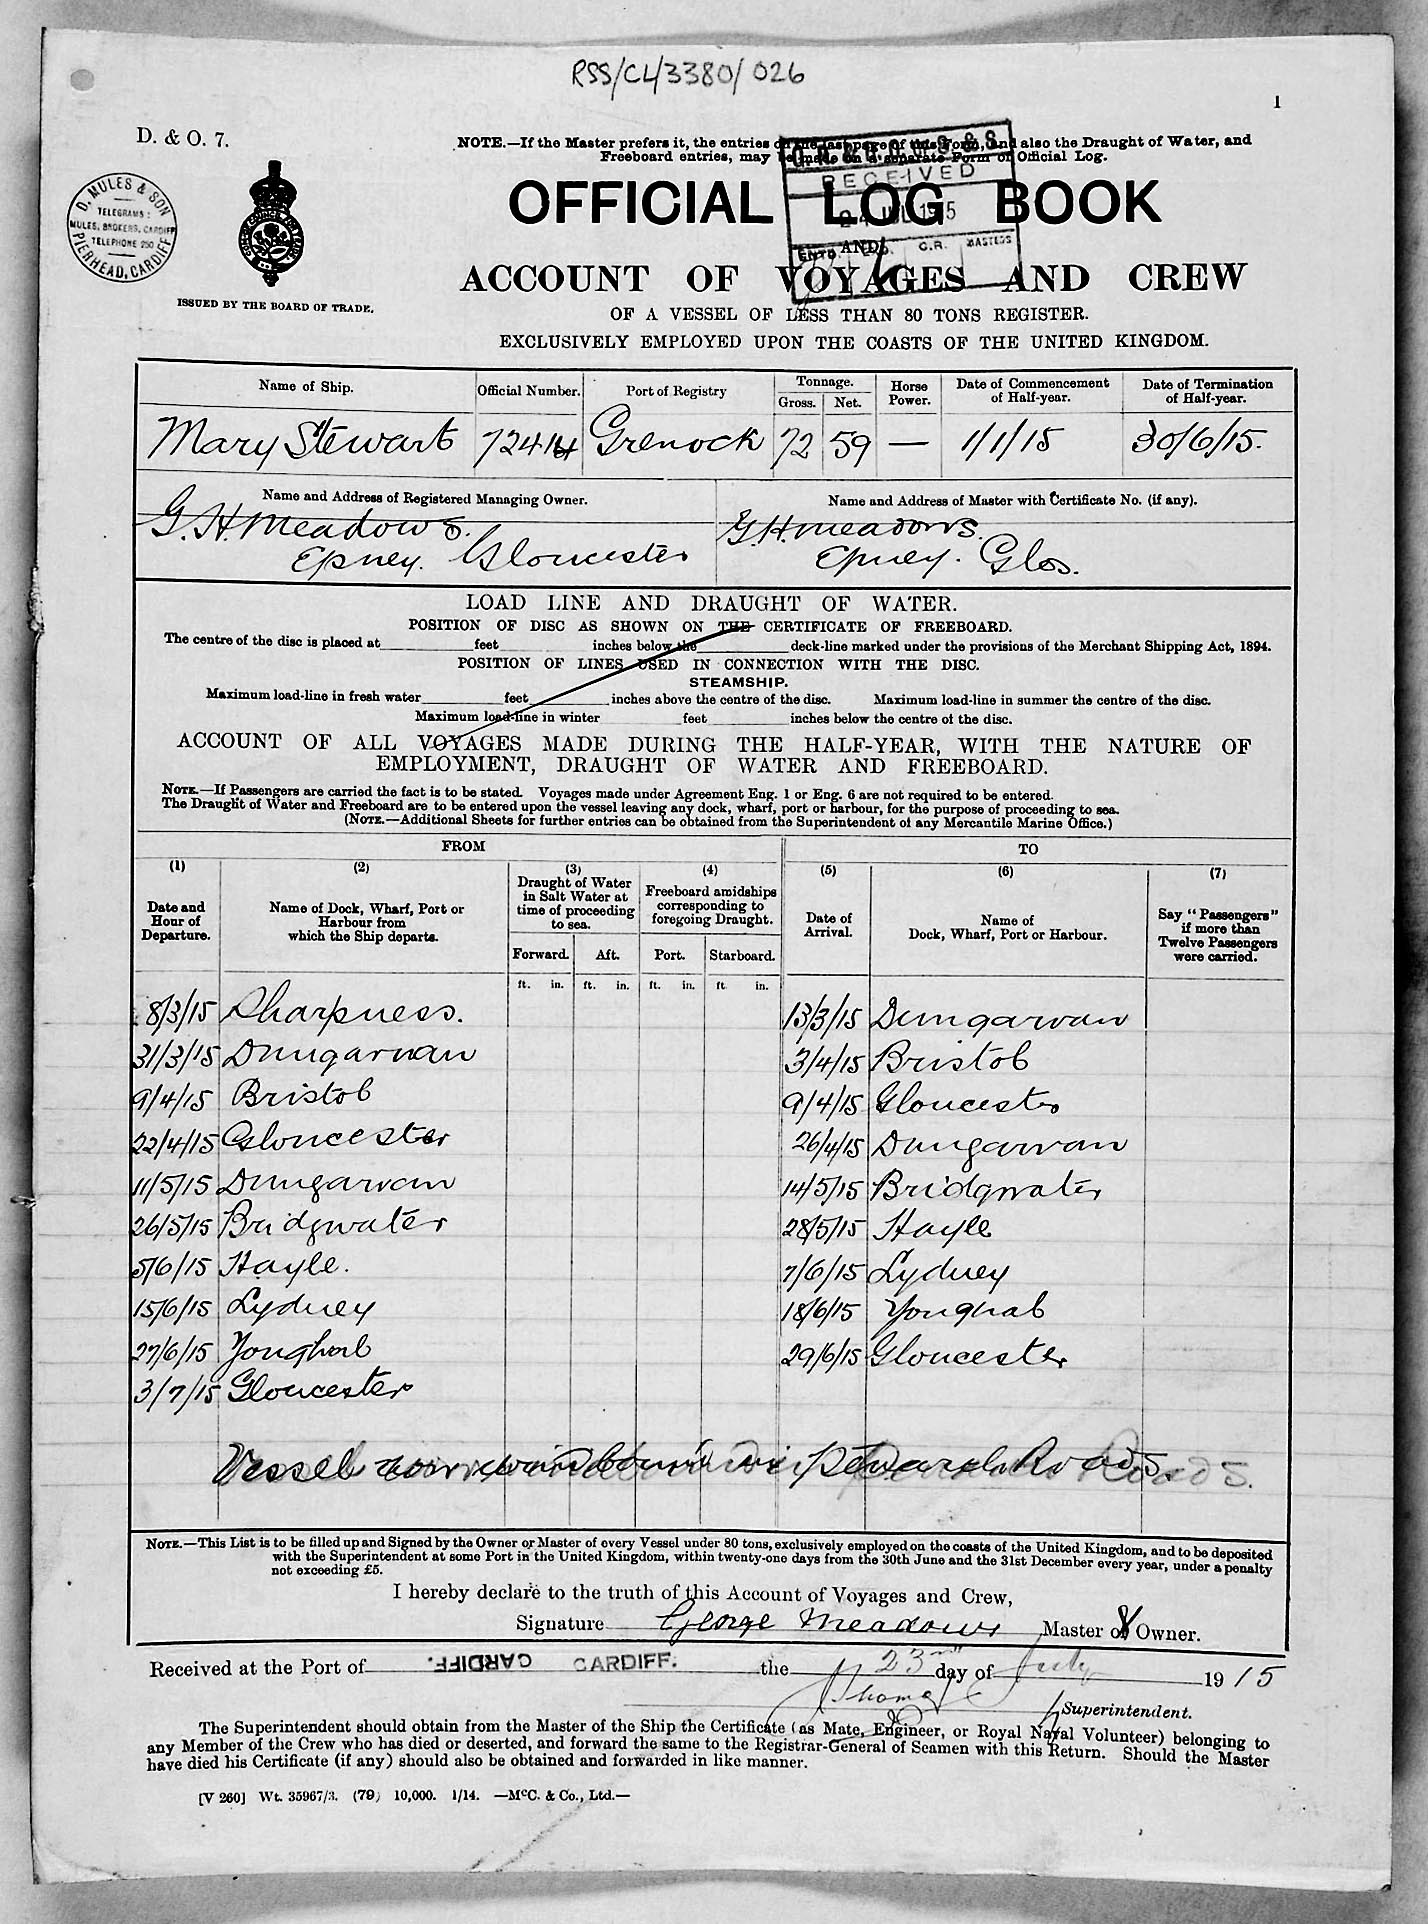 RSS/CL/3380/026
1
D. & O. 7.
NOTE.—If the Master prefers it, the entries on the last page of this Form, and also the Draught of Water, and
Freeboard entries, may be made on a separate Form of Official Log.
D. MULES & SON
TELEGRAMS:
MULES, BROKERS, CARDIFF
TELEPHONE 250
PIERHEAD, CARDIFF
RECEIVED
24 JUL 1915
ENTD. C.R. MASTERS
OFFICIAL LOG BOOK
AND
ACCOUNT OF VOYAGES AND CREW
ISSUED BY THE BOARD OF TRADE.
OF A VESSEL OF LESS THAN 80 TONS REGISTER.
EXCLUSIVELY EMPLOYED UPON THE COASTS OF THE UNITED KINGDOM.
Name of Ship. Official Number. Port of Registry Tonnage. Gross. Net. Horse Power. Date of Commencement of Half-year. Date of Termination of Half-year.
Mary Stewart 72414 Grenock 72 59 — 1/1/15 30/6/15.
Name and Address of Registered Managing Owner. Name and Address of Master with Certificate No. (if any).
G. H. Meadows. G. H. Meadows.
Epney. Gloucester Epney. Glos.
LOAD LINE AND DRAUGHT OF WATER.
POSITION OF DISC AS SHOWN ON THE CERTIFICATE OF FREEBOARD.
The centre of the disc is placed at feet inches below the deck-line marked under the provisions of the Merchant Shipping Act, 1894.
POSITION OF LINES USED IN CONNECTION WITH THE DISC.
STEAMSHIP.
Maximum load-line in fresh water feet inches above the centre of the disc. Maximum load-line in summer the centre of the disc.
Maximum load-line in winter feet inches below the centre of the disc.
ACCOUNT OF ALL VOYAGES MADE DURING THE HALF-YEAR, WITH THE NATURE OF
EMPLOYMENT, DRAUGHT OF WATER AND FREEBOARD.
NOTE.—If Passengers are carried the fact is to be stated. Voyages made under Agreement Eng. 1 or Eng. 6 are not required to be entered.
The Draught of Water and Freeboard are to be entered upon the vessel leaving any dock, wharf, port or harbour, for the purpose of proceeding to sea.
(NOTE.—Additional Sheets for further entries can be obtained from the Superintendent of any Mercantile Marine Office.)
FROM TO
(1) (2) (3) (4) (5) (6) (7)
Date and Hour of Departure. Name of Dock, Wharf, Port or Harbour from which the Ship departs. Draught of Water in Salt Water at time of proceeding to sea. Freeboard amidships corresponding to foregoing Draught. Date of Arrival. Name of Dock, Wharf, Port or Harbour. Say "Passengers" if more than Twelve Passengers were carried.
Forward. Aft. Port. Starboard.
ft. in. ft. in. ft. in. ft. in.
8/3/15 Sharpness. 13/3/15 Dungarvan
31/3/15 Dungarvan 3/4/15 Bristol
9/4/15 Bristol 9/4/15 Gloucester
22/4/15 Gloucester 26/4/15 Dungarvan
11/5/15 Dungarvan 14/5/15 Bridgwater
26/5/15 Bridgwater 28/5/15 Hayle
5/6/15 Hayle. 7/6/15 Lydney
15/6/15 Lydney 18/6/15 Youghal
27/6/15 Youghal 29/6/15 Gloucester
3/7/15 Gloucester
Vessel now windbound in Penarth Roads.
NOTE.—This List is to be filled up and Signed by the Owner or Master of every Vessel under 80 tons, exclusively employed on the coasts of the United Kingdom, and to be deposited
with the Superintendent at some Port in the United Kingdom, within twenty-one days from the 30th June and the 31st December every year, under a penalty
not exceeding £5.
I hereby declare to the truth of this Account of Voyages and Crew,
Signature George Meadows Master or & Owner.
Received at the Port of CARDIFF. CARDIFF. the 23rd day of July 1915
Thomas
Superintendent.
The Superintendent should obtain from the Master of the Ship the Certificate (as Mate, Engineer, or Royal Naval Volunteer) belonging to
any Member of the Crew who has died or deserted, and forward the same to the Registrar-General of Seamen with this Return. Should the Master
have died his Certificate (if any) should also be obtained and forwarded in like manner.
[V 260] Wt. 35967/3. (79) 10,000. 1/14. —McC. & Co., Ltd.—